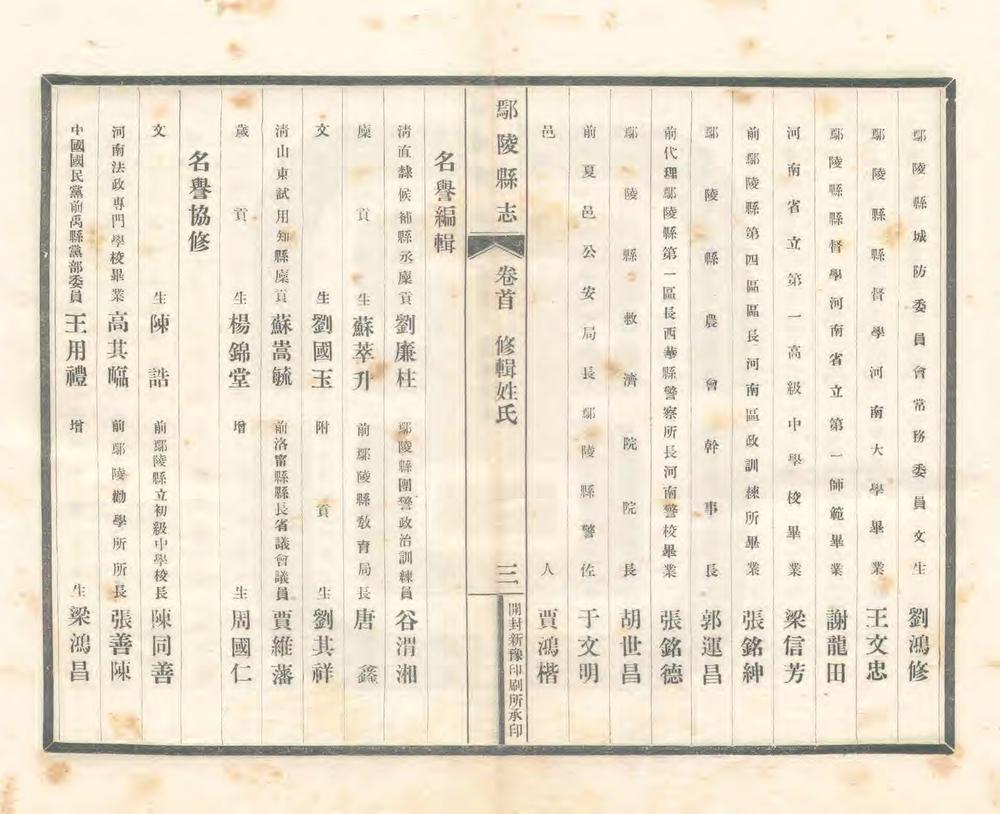 鄢陵縣城防委員會常務委員文生劉鴻修
鄢陵縣縣督學河南大學畢業王文忠
鄢陵縣縣督學河南省立第一師範畢業謝龍田
河南省立第一高級中學校畢業梁信芳
前鄢陵縣第四區區長河南區政訓練所畢業張銘紳
鄢陵縣農會幹事長郭運昌
前代理鄢陵縣第一區長西華縣警察所長河南警校畢業張銘德
鄢陵縣救濟院院長胡世昌
前夏邑公安局長鄢陵縣警佐于文明
邑人賈鴻楷
鄢陵縣志 卷首 修輯姓氏 三 開封新豫印刷所承印
名譽編輯
清直隸候補縣丞廩貢劉廉柱 鄢陵縣團警政治訓練員谷渭湘
廩貢生蘇萃升 前鄢陵縣教育局長唐鑫
文生劉國玉 附貢生劉其祥
清山東試用知縣廩貢蘇嵩毓 前洛甯縣縣長省議會議員賈維藩
歲貢生楊錦堂 增生周國仁
名譽協修
文生陳誥 前鄢陵縣立初級中學校長陳同善
河南法政專門學校畢業高其㬎 前鄢陵勸學所所長張善陳
中國國民黨前禹縣黨部委員王用禮 增生梁鴻昌